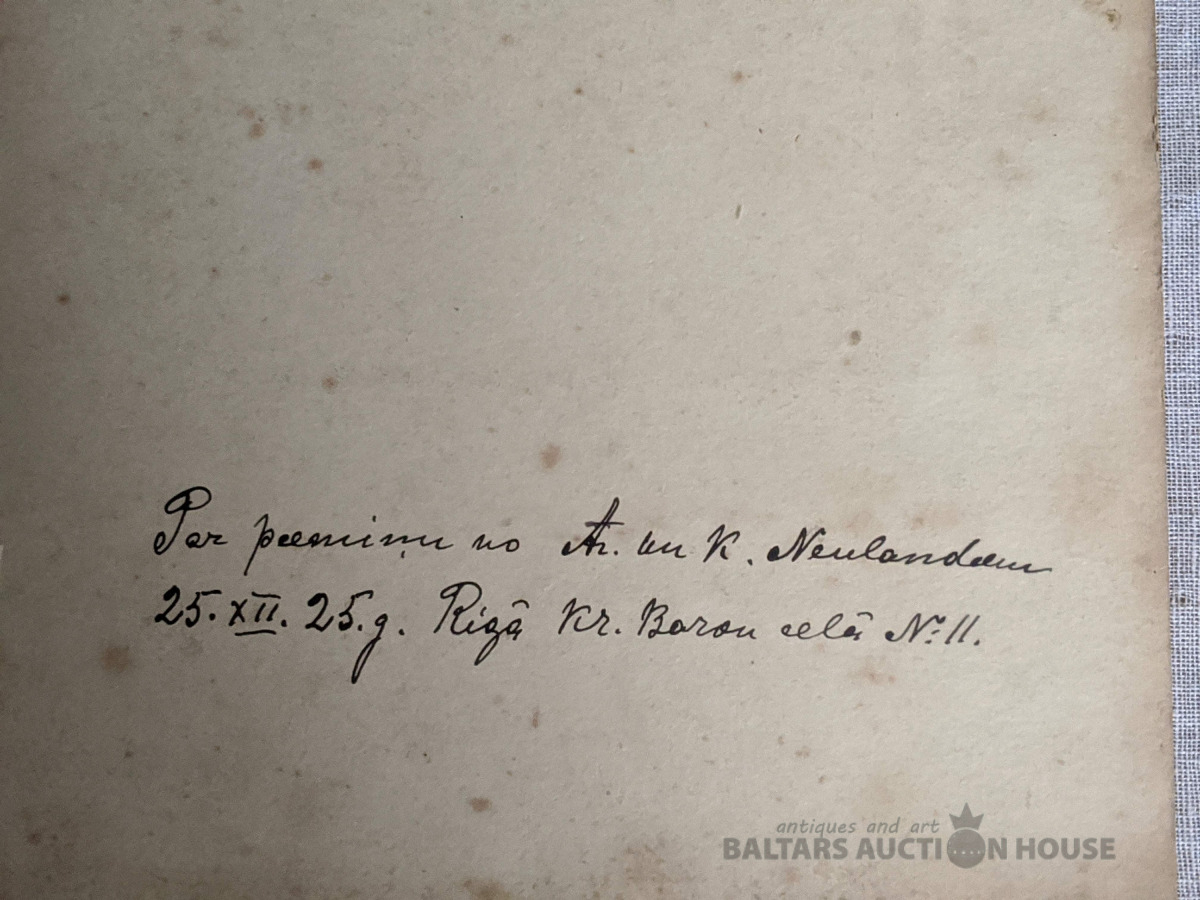 Par piemiņu no Ar. un K. Neulandiem
25. XII. 25. g. Rīgā Kr. Baron ielā № 11.
antiques and art
BALTARS AUCTION HOUSE